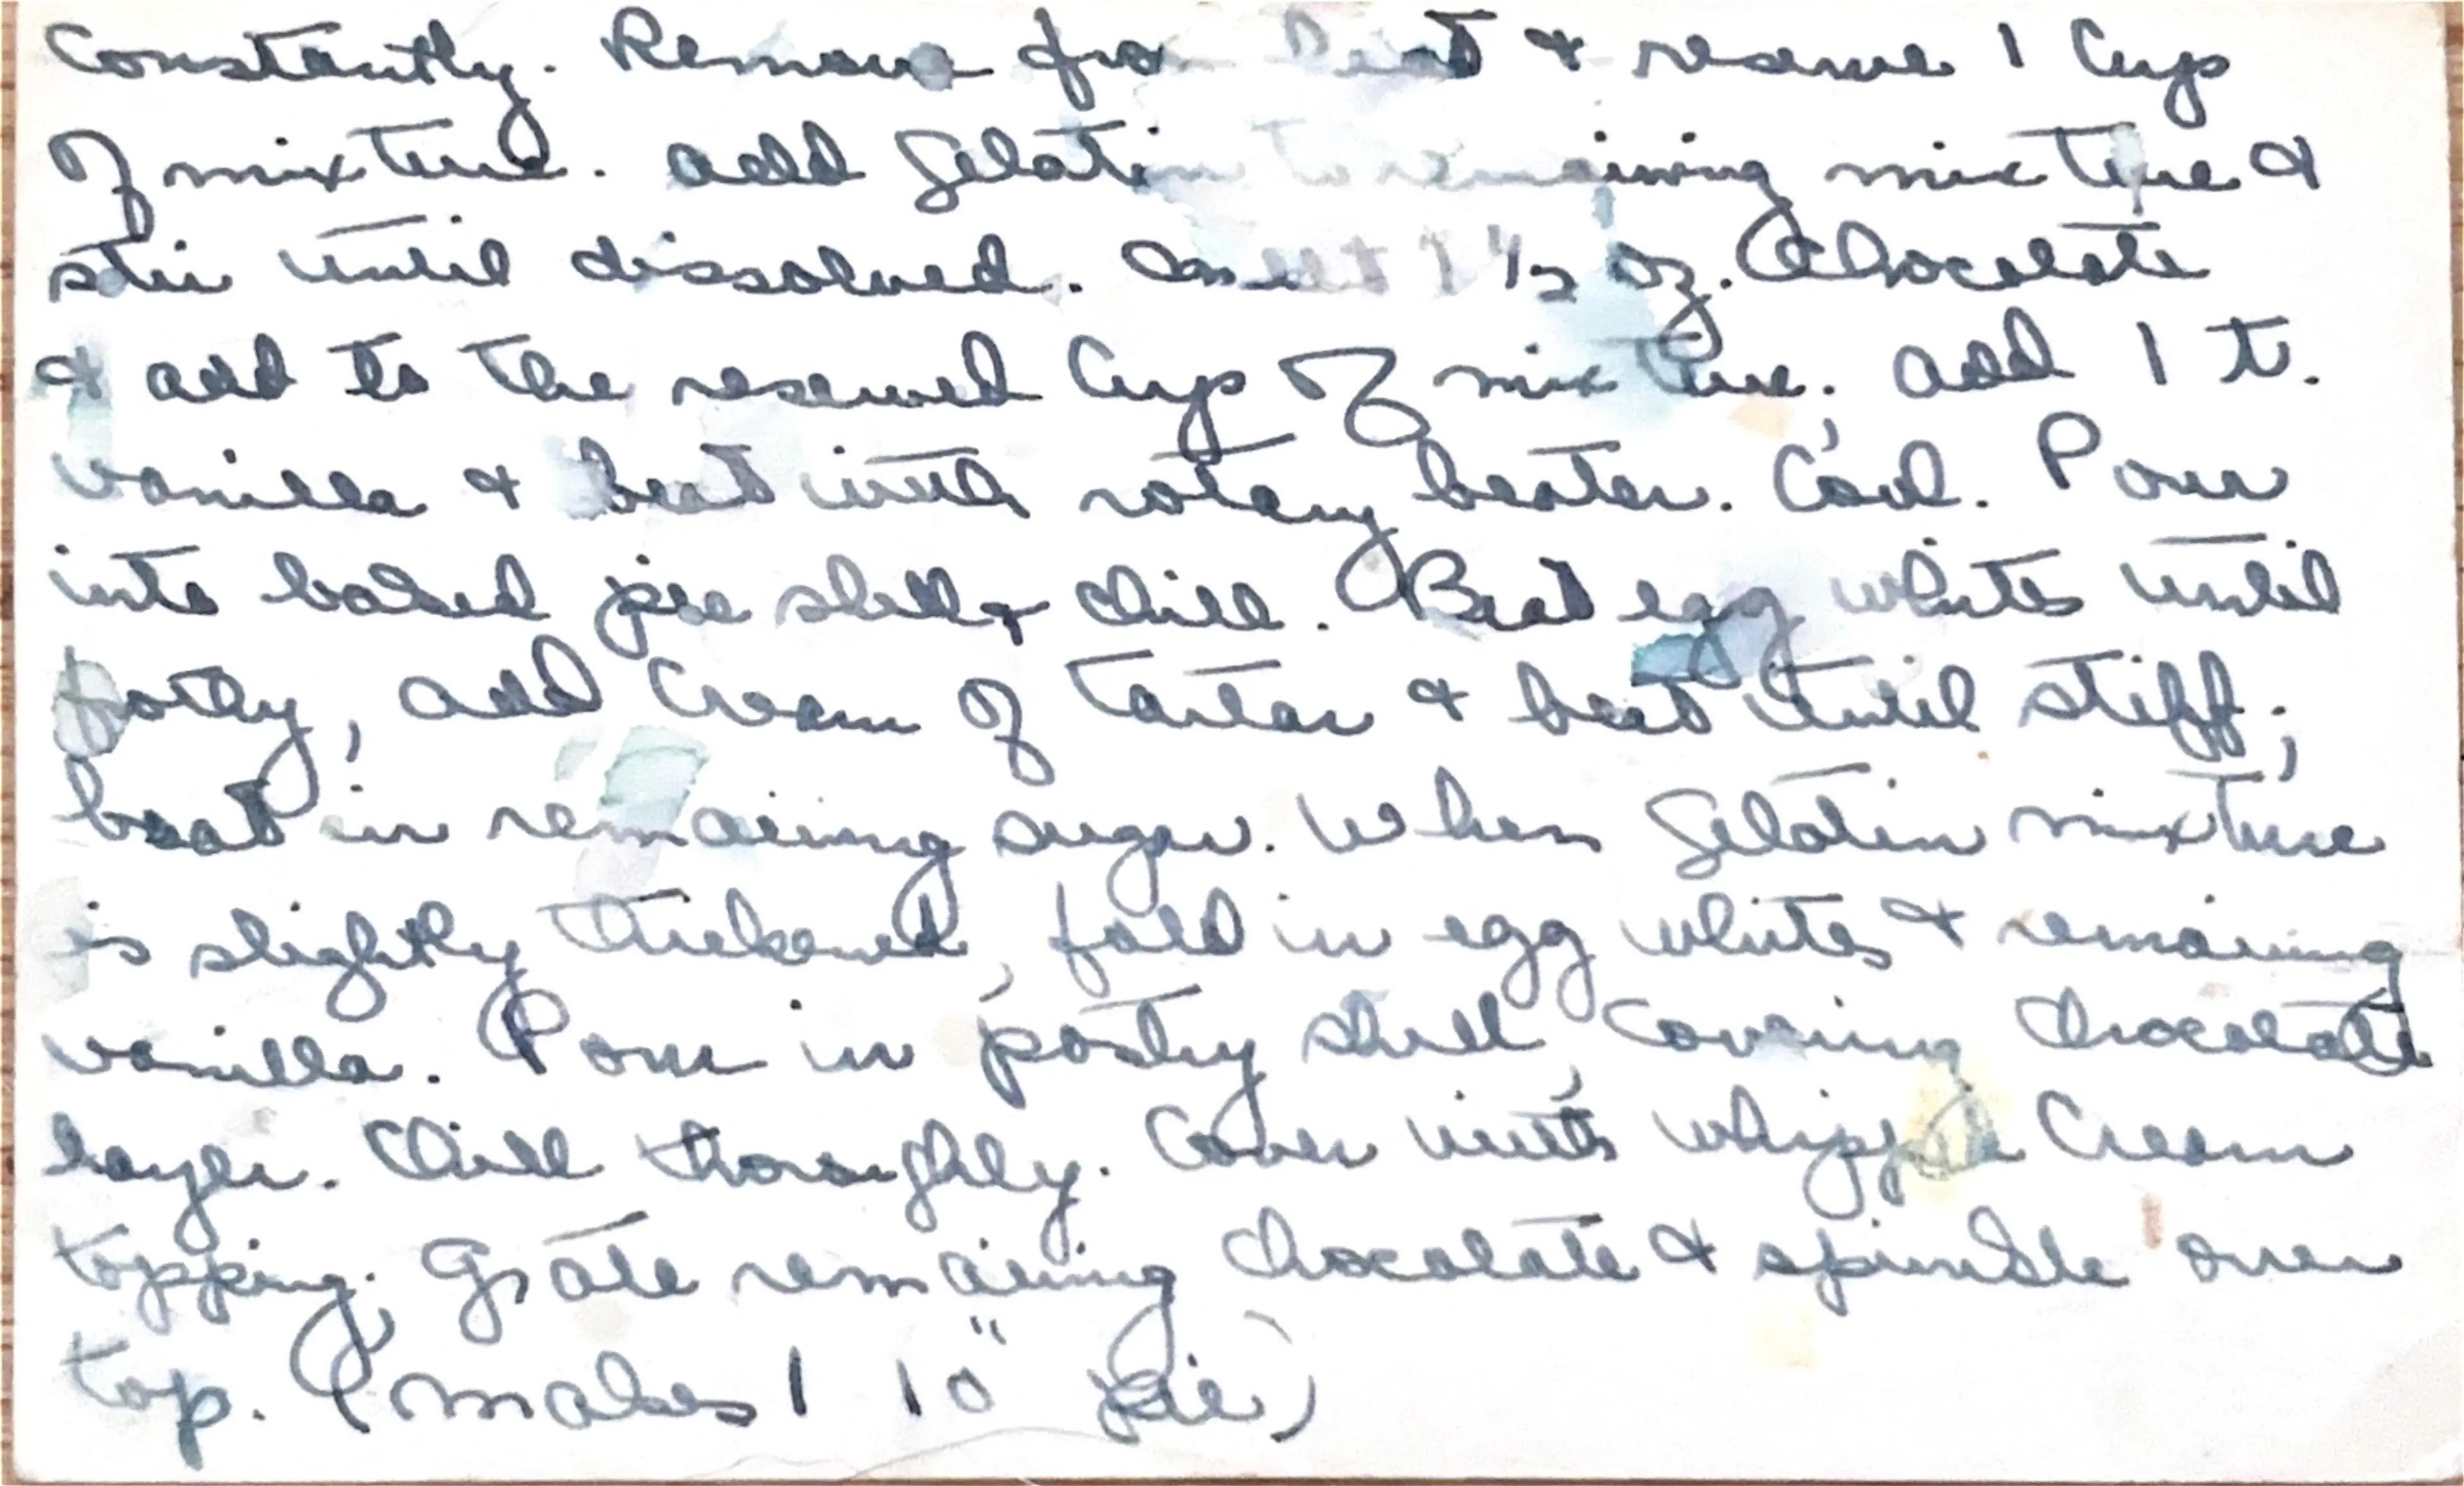 Constantly. Remove from heat & reserve 1 Cup
of mixture. add Gelatin to remaining mixture &
stir until dissolved. melt 1 1/2 oz. Chocolate
& add to the reserved Cup of mixture; add 1 t.
vanilla & beat with rotary beater. Cool. Pour
into baked pie shell & chill. Beat egg whites until
frothy, add Cream of tartar & beat until stiff;
beat in remaining sugar. When Gelatin mixture
is slightly thickened, fold in egg whites & remaining
vanilla. Pour in pastry shell, Covering Chocolate
layer. Chill thoroughly. Cover with whipped Cream
topping. Grate remaining Chocolate & sprinkle over
top. (makes 1 10" pie)